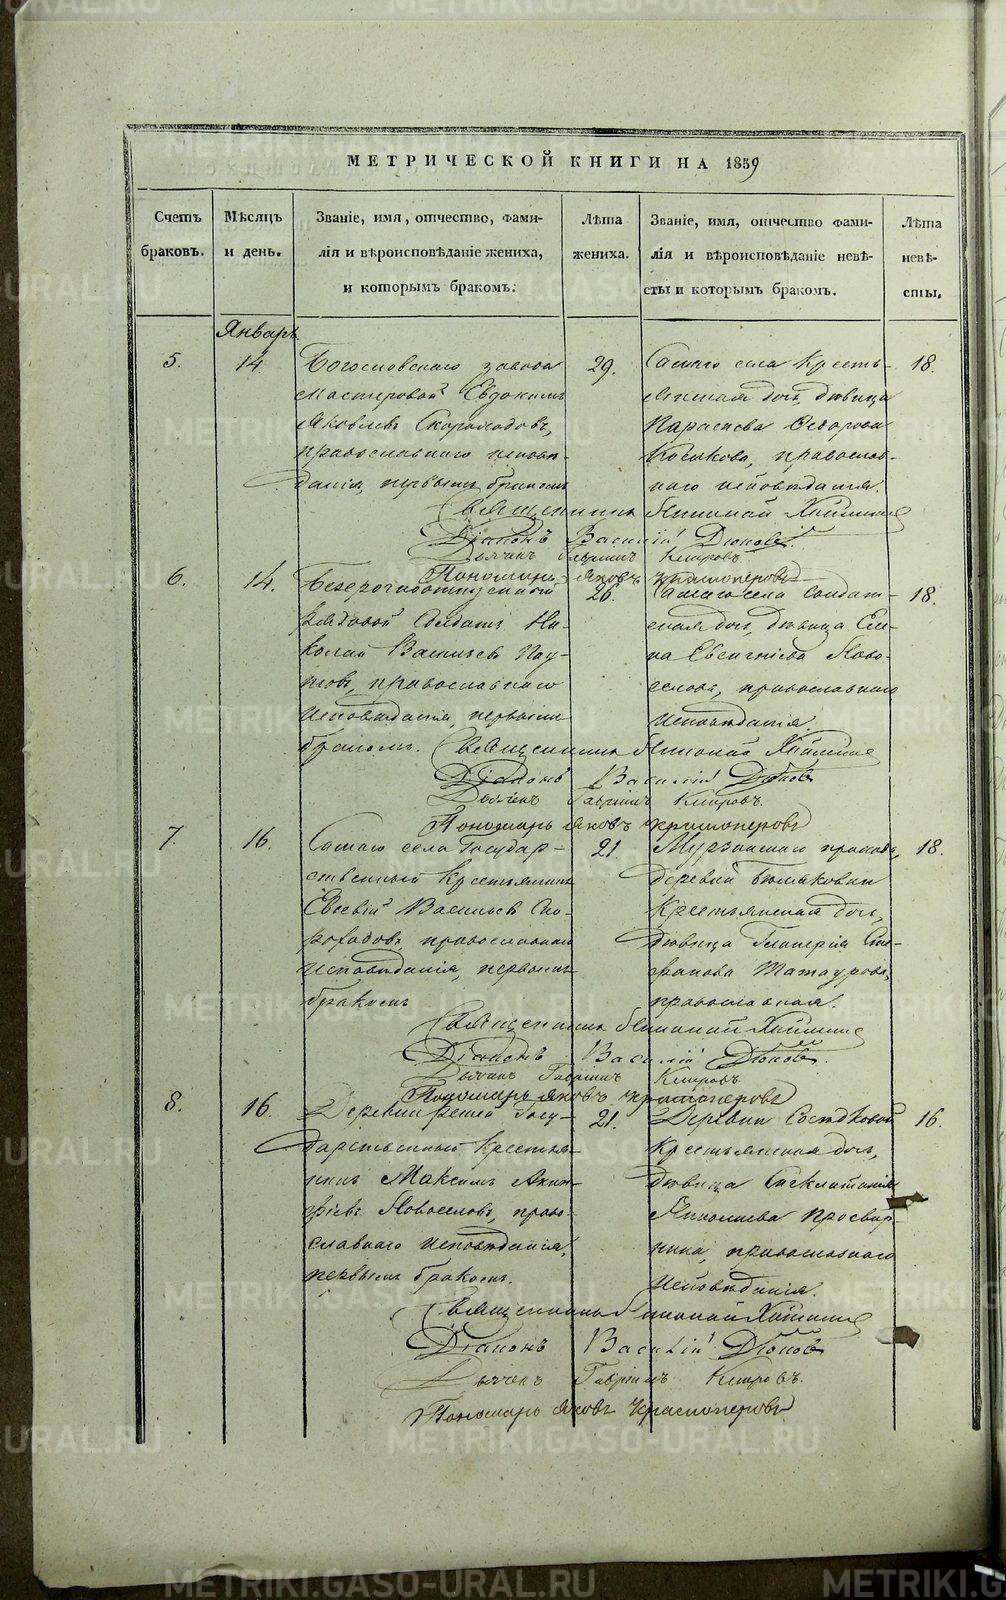 МЕТРИЧЕСКОЙ КНИГИ НА 1859
Счетъ браковъ.
Мѣсяцъ и день.
Званіе, имя, отчество, фами-
лія и вѣроисповѣданіе жениха,
и которымъ бракомъ.
Лѣта жениха.
Званіе, имя, отчество фами-
лія и вѣроисповѣданіе невѣ-
сты и которымъ бракомъ.
Лѣта невѣ-
сты.
Январь
5.
14
Богословскаго завода
мастеровой Евдокимъ
Яковлевъ Скороходовъ,
православнаго исповѣ-
данія, первымъ бракомъ
29.
Самаго села кресть-
янская дочь, дѣвица
Параскева Ѳедорова
Косикова, православ-
наго исповѣданія.
18.
Священникъ
Діаконъ Василій Дюковъ.
Дьячекъ Гавріилъ Кипровъ.
Пономарь Яковъ Красноперовъ
6.
14.
Безсрочноотпускной
рядовой Солдатъ Ни-
колай Васильевъ
православнаго
исповѣданія, первымъ
бракомъ.
26.
Самаго села солдат-
ская дочь, дѣвица Еле-
на Евсигніева Ново-
селова, православнаго
исповѣданія.
18.
Священникъ
Діаконъ Василій Дюковъ
Дьячекъ Гавріилъ Кипровъ.
Пономарь Яковъ Красноперовъ
7.
16.
Самаго села Государ-
ственный крестьянинъ
Евсевій Васильевъ Ско-
роходовъ, православнаго
исповѣданія, первымъ
бракомъ
21.
Мурзинскаго прихода,
деревни
Крестьянская дочь,
дѣвица Гликерія Сте-
фанова Татаурова,
православная.
18.
Священникъ
Діаконъ Василій Дюковъ.
Дьячекъ Гавріилъ Кипровъ.
Пономарь Яковъ Красноперовъ
8.
16.
Деревни Госу-
дарственный крестья-
нинъ Максимъ
Новоселовъ, право-
славнаго исповѣданія,
первымъ бракомъ.
21.
Деревни
Крестьянская дочь,
дѣвица Синклитикія
Николаева Просвир-
нина, православнаго
исповѣданія.
16.
Священникъ
Діаконъ Василій Дюковъ
Дьячекъ Гавріилъ Кипровъ.
Пономарь Яковъ Красноперовъ
METRIKI.GASO-URAL.RU